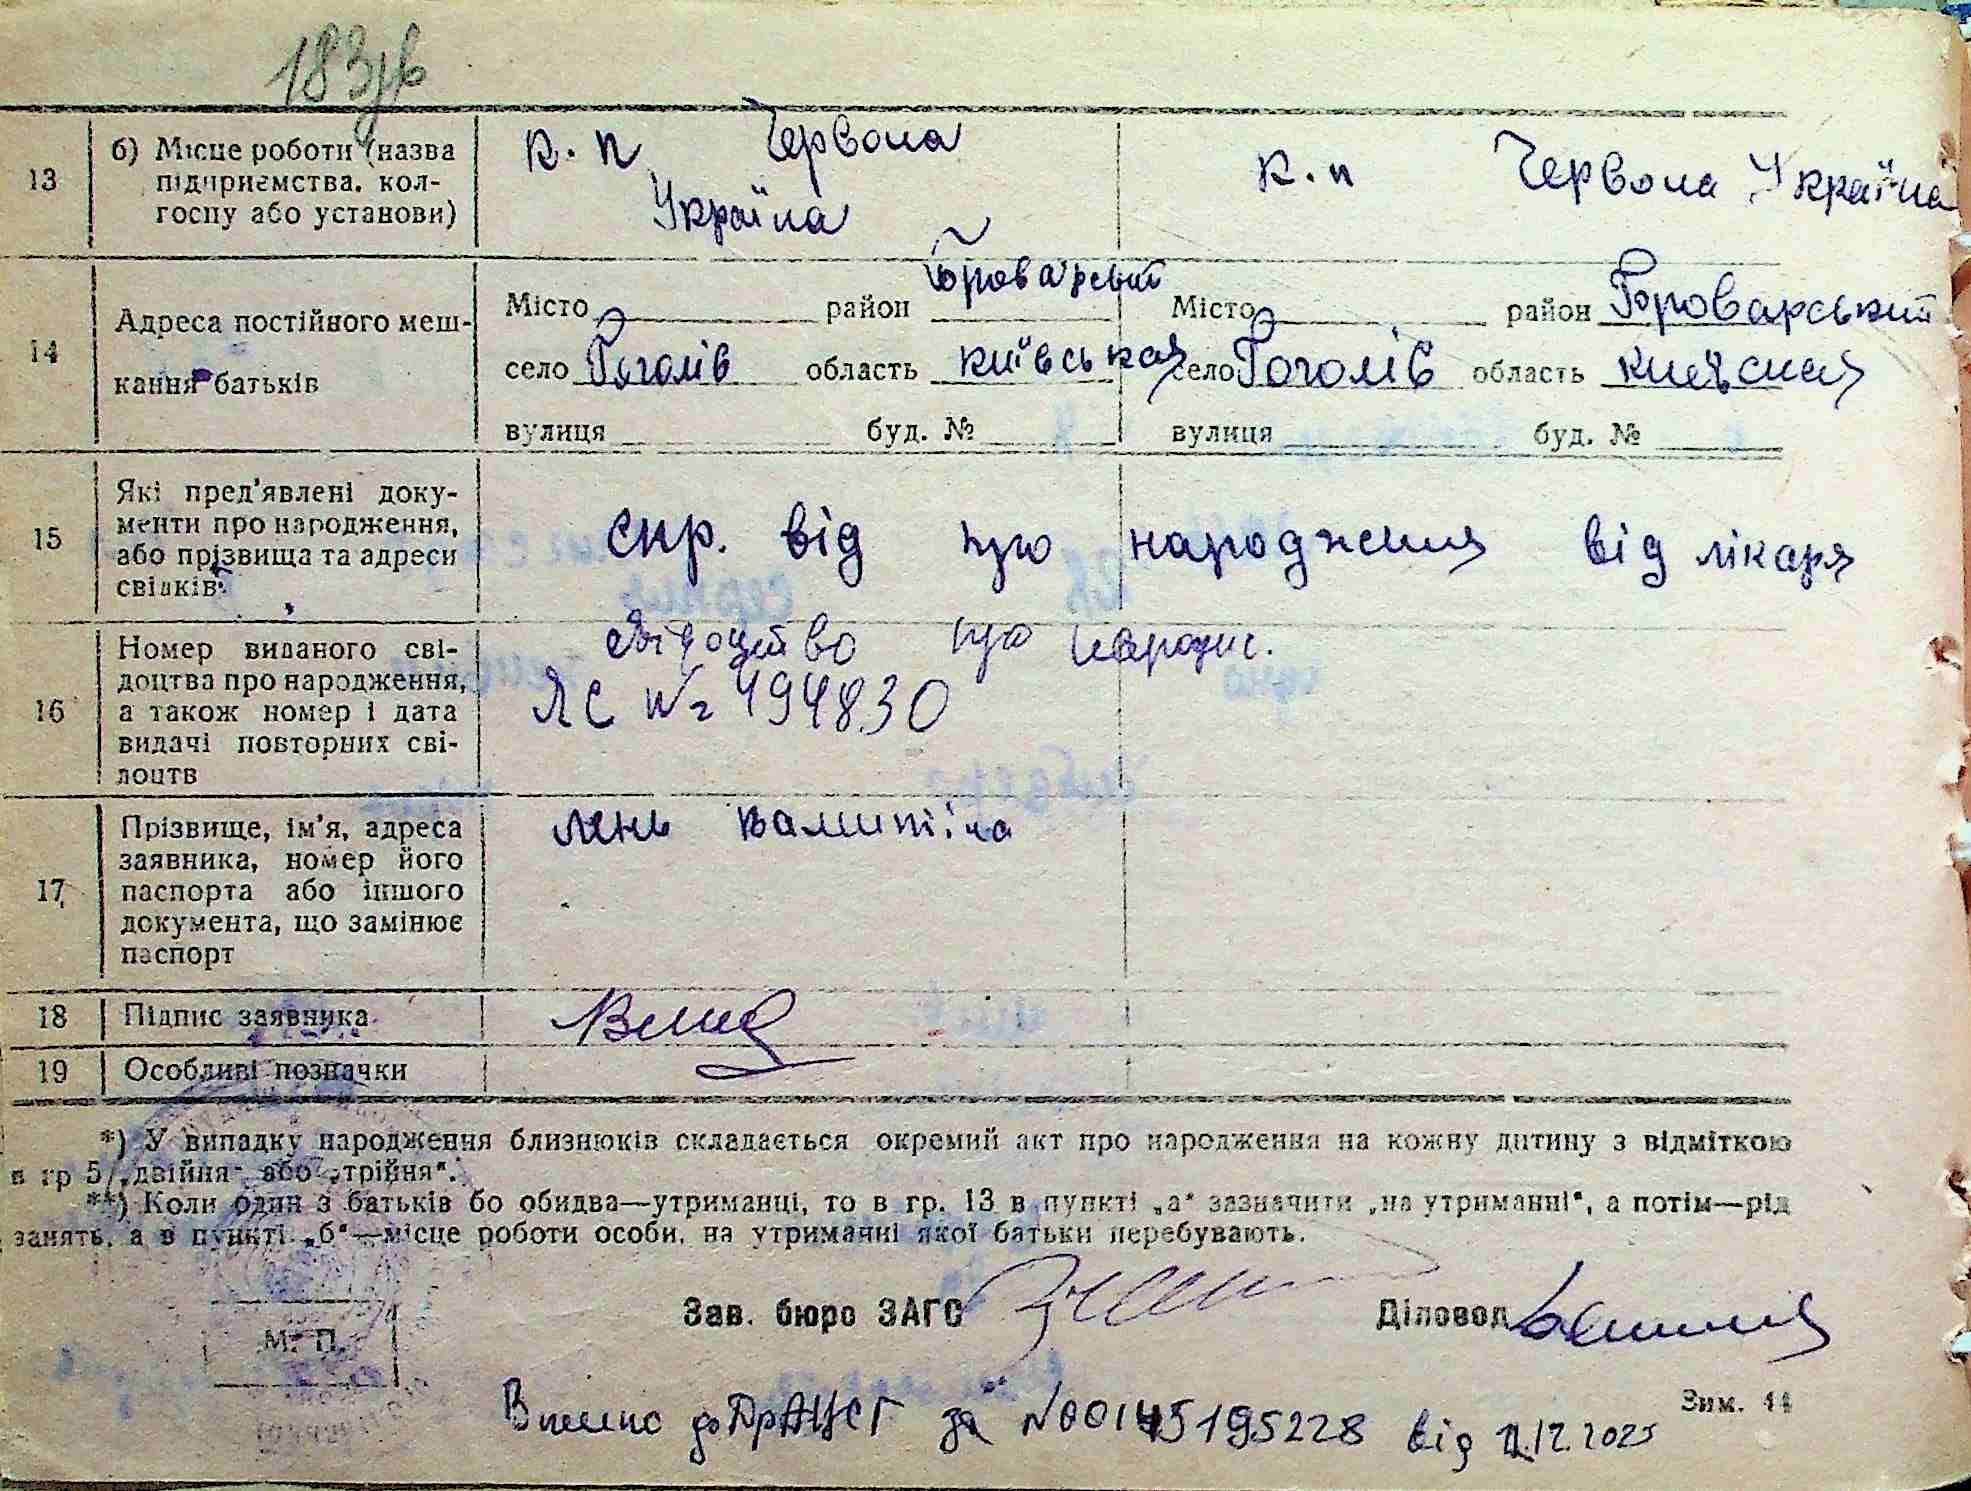 183зв
13 б) Місце роботи (назва підприємства, колгоспу або установи) к.п Червона Україна к.п Червона Україна
14 Адреса постійного мешкання батьків
Місто район Броварський Місто район Броварський
село Гоголів область київська село Гоголів область київская
вулиця буд. № вулиця буд. №
15 Які пред'явлені документи про народження, або прізвища та адреси свідків
спр. від про народження від лікаря
16 Номер виданого свідоцтва про народження, а також номер і дата видачі повторних свідоцтв
свідоцтво про народж.
ЯС № 494830
17 Прізвище, ім'я, адреса заявника, номер його паспорта або іншого документа, що замінює паспорт
лень
18 Підпис заявника
19 Особливі позначки
*) У випадку народження близнюків складається окремий акт про народження на кожну дитину з відміткою
в гр 5 „двійня" або „трійня".
**) Коли один з батьків бо обидва—утриманці, то в гр. 13 в пункті „а" зазначити „на утриманні", а потім—рід
занять, а в пункті „б"—місце роботи особи, на утриманні якої батьки перебувають.
Зав. бюро ЗАГС Діловод
М. П.
Зим. 44
Внесено до ДРАЦСГ за №00145195228 від 12.12.2025